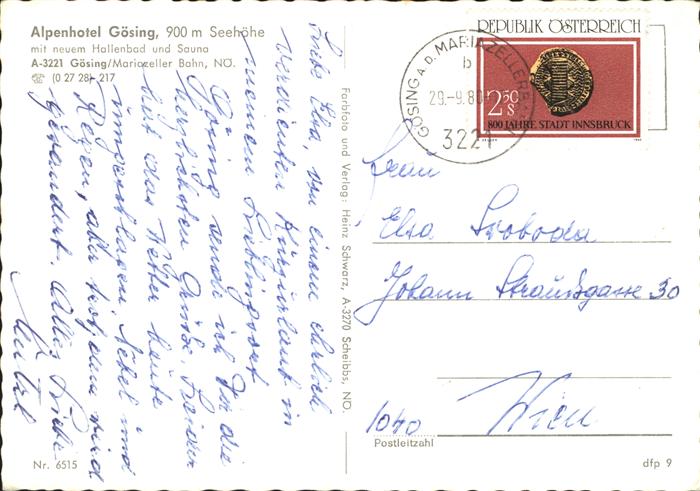 Alpenhotel Gösing, 900 m Seehöhe
mit neuem Hallenbad und Sauna
A-3221 Gösing/Mariazeller Bahn, NÖ.
☎ (0 27 28) 217
Liebe Elsa, von einem ehrlich
verdienten Kurzurlaub in
meinem Lieblingsort
Gösing sende ich Dir die
herzlichsten Grüße. Leider
hat das Wetter heute
umgeschlagen. Nebel und
Regen, aber trotzdem wird
gewandert. Alles Liebe
Nr. 6515
Farbfoto und Verlag: Heinz Schwarz, A-3270 Scheibbs, NÖ.
REPUBLIK ÖSTERREICH
2.50 S
800 JAHRE STADT INNSBRUCK
GÖSING A.D. MARIAZELLERB.
b
29.-9.80
3221
Frau
Elsa Svoboda
Johann Straußgasse 30
1040 Wien
Postleitzahl
dfp 9